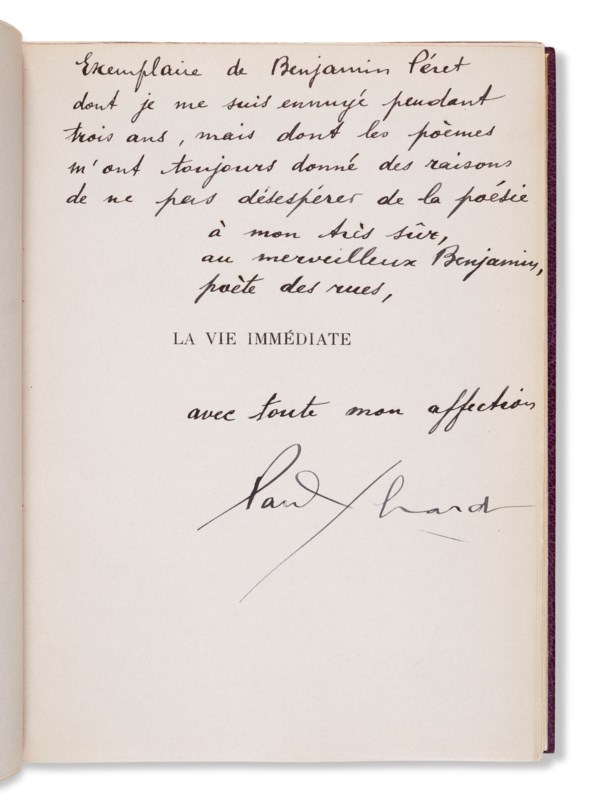 Exemplaire de Benjamin Péret
dont je me suis ennuyé pendant
trois ans, mais dont les poèmes
m'ont toujours donné des raisons
de ne pas désespérer de la poésie
à mon très sûr,
au merveilleux Benjamin,
poète des rues,
LA VIE IMMÉDIATE
avec toute mon affection
Paul Eluard